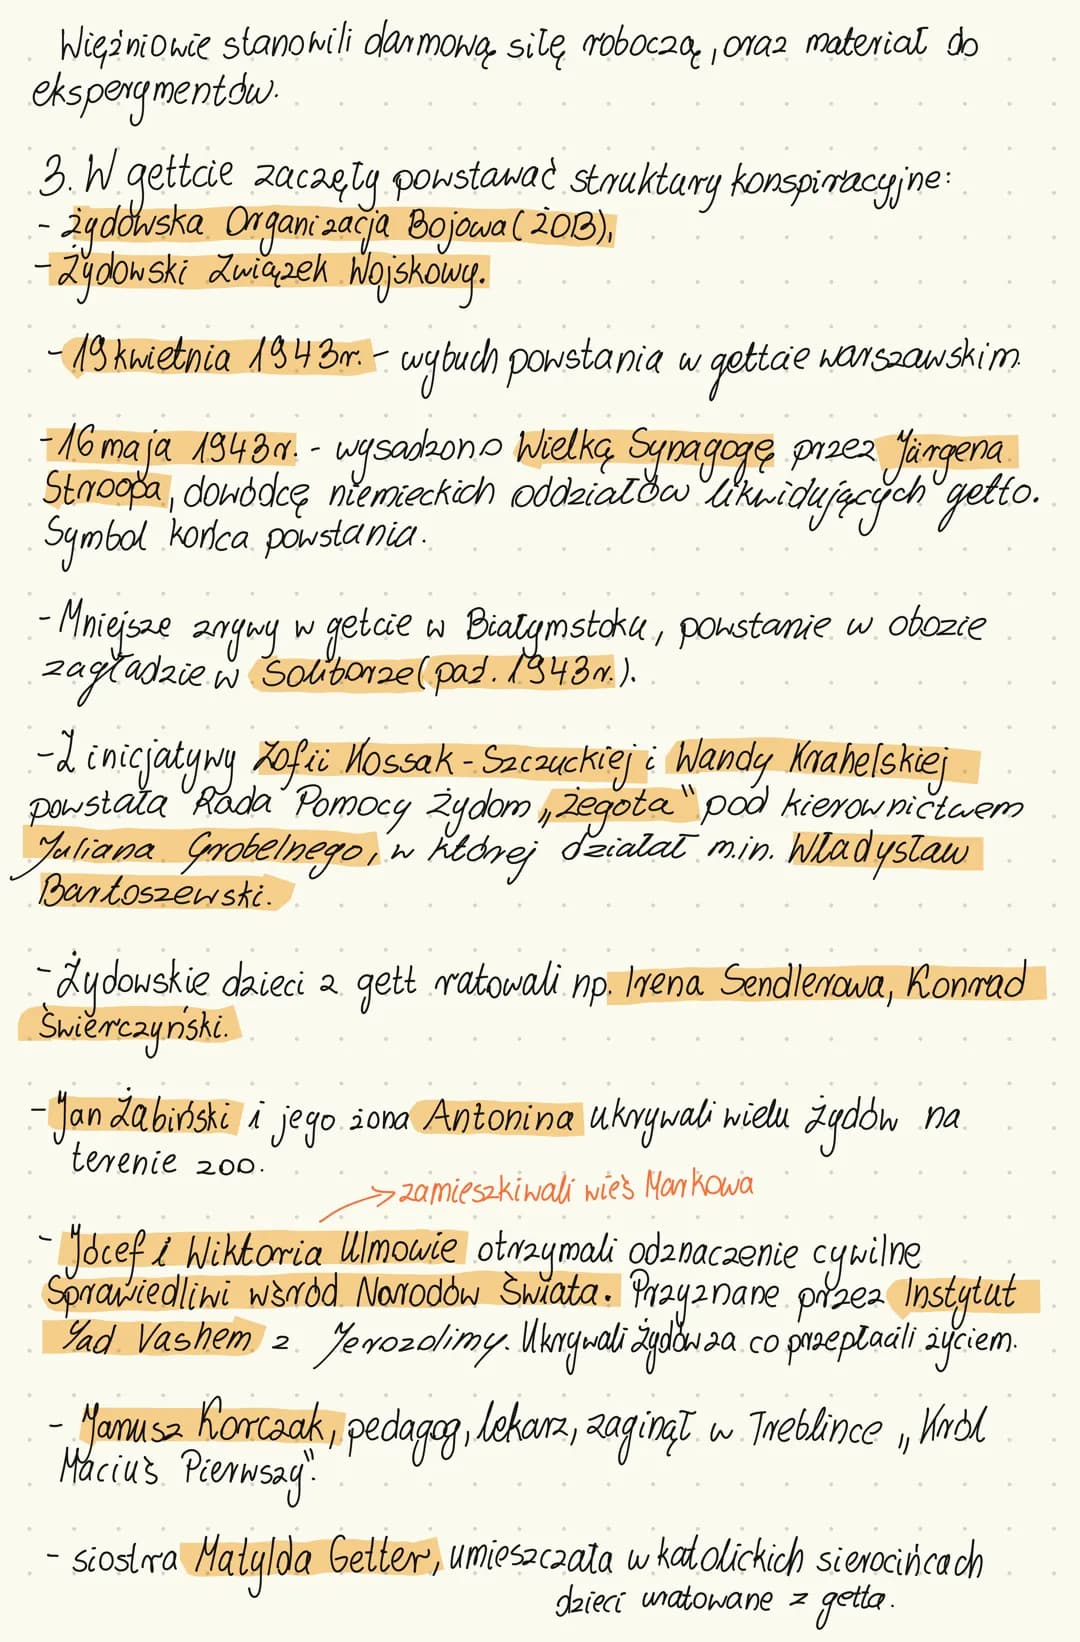 Więźniowie stanowili darmową siłę roboczą, oraz materiał do
eksperymentów.
3. W gettcie zaczęły powstawać struktury konspiracyjne:
- żydowska Organizacja Bojowa (ŻOB),
- Żydowski Związek Wojskowy.
- 19 kwietnia 1943r. - wybuch powstania w gettcie warszawskim.
- 16 maja 1943r. - wysadzono Wielką Synagogę przez Jürgena
Stroopa, dowódcę niemieckich oddziałów likwidujących getto.
Symbol końca powstania.
- Mniejsze zrywy w getcie w Białymstoku, powstanie w obozie
zagładzie w Sobiborze (paź. 1943r.).
- Z inicjatywy Zofii Kossak - Szczuckiej i Wandy Krahelskiej
powstała Rada Pomocy żydom „Żegota" pod kierownictwem
Juliana Grobelnego, w której działał m.in. Władysław
Bartoszewski.
- Żydowskie dzieci z gett ratowali np. Irena Sendlerowa, Konrad
Świerczyński.
- Jan Żabiński i jego żona Antonina ukrywali wielu żydów na
terenie zoo.
→ zamieszkiwali wieś Markowa
- Józef i Wiktoria Ulmowie otrzymali odznaczenie cywilne
Sprawiedliwi wśród Narodów Świata. Przyznane przez Instytut
Yad Vashem z Jerozolimy. Ukrywali żydów za co przepłacili życiem.
- Janusz Korczak, pedagog, lekarz, zaginął w Treblince „Król
Maciuś Pierwszy".
- siostra Matylda Getter, umieszczała w katolickich sierocińcach
dzieci uratowane z getta.